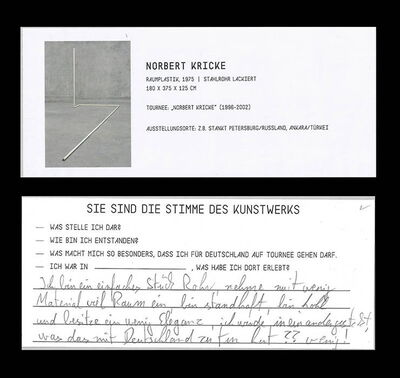 NORBERT KRICKE
RAUMPLASTIK, 1975 | STAHLROHR LACKIERT
180 X 375 X 125 CM
TOURNEE: „NORBERT KRICKE“ (1996-2002)
AUSSTELLUNGSORTE: Z.B. STANKT PETERSBURG/RUSSLAND, ANKARA/TÜRKEI
SIE SIND DIE STIMME DES KUNSTWERKS
— WAS STELLE ICH DAR?
— WIE BIN ICH ENTSTANDEN?
— WAS MACHT MICH SO BESONDERS, DASS ICH FÜR DEUTSCHLAND AUF TOURNEE GEHEN DARF.
— ICH WAR IN ____________, WAS HABE ICH DORT ERLEBT?
Ich bin ein einfaches Stück Rohr, nehme mit wenig
Material viel Raum ein bin standhaft, bin hohl
und besitze ein wenig Eleganz, ich wurde ineinandergesteckt,
was das mit Deutschland zu tun hat ?? wenig!